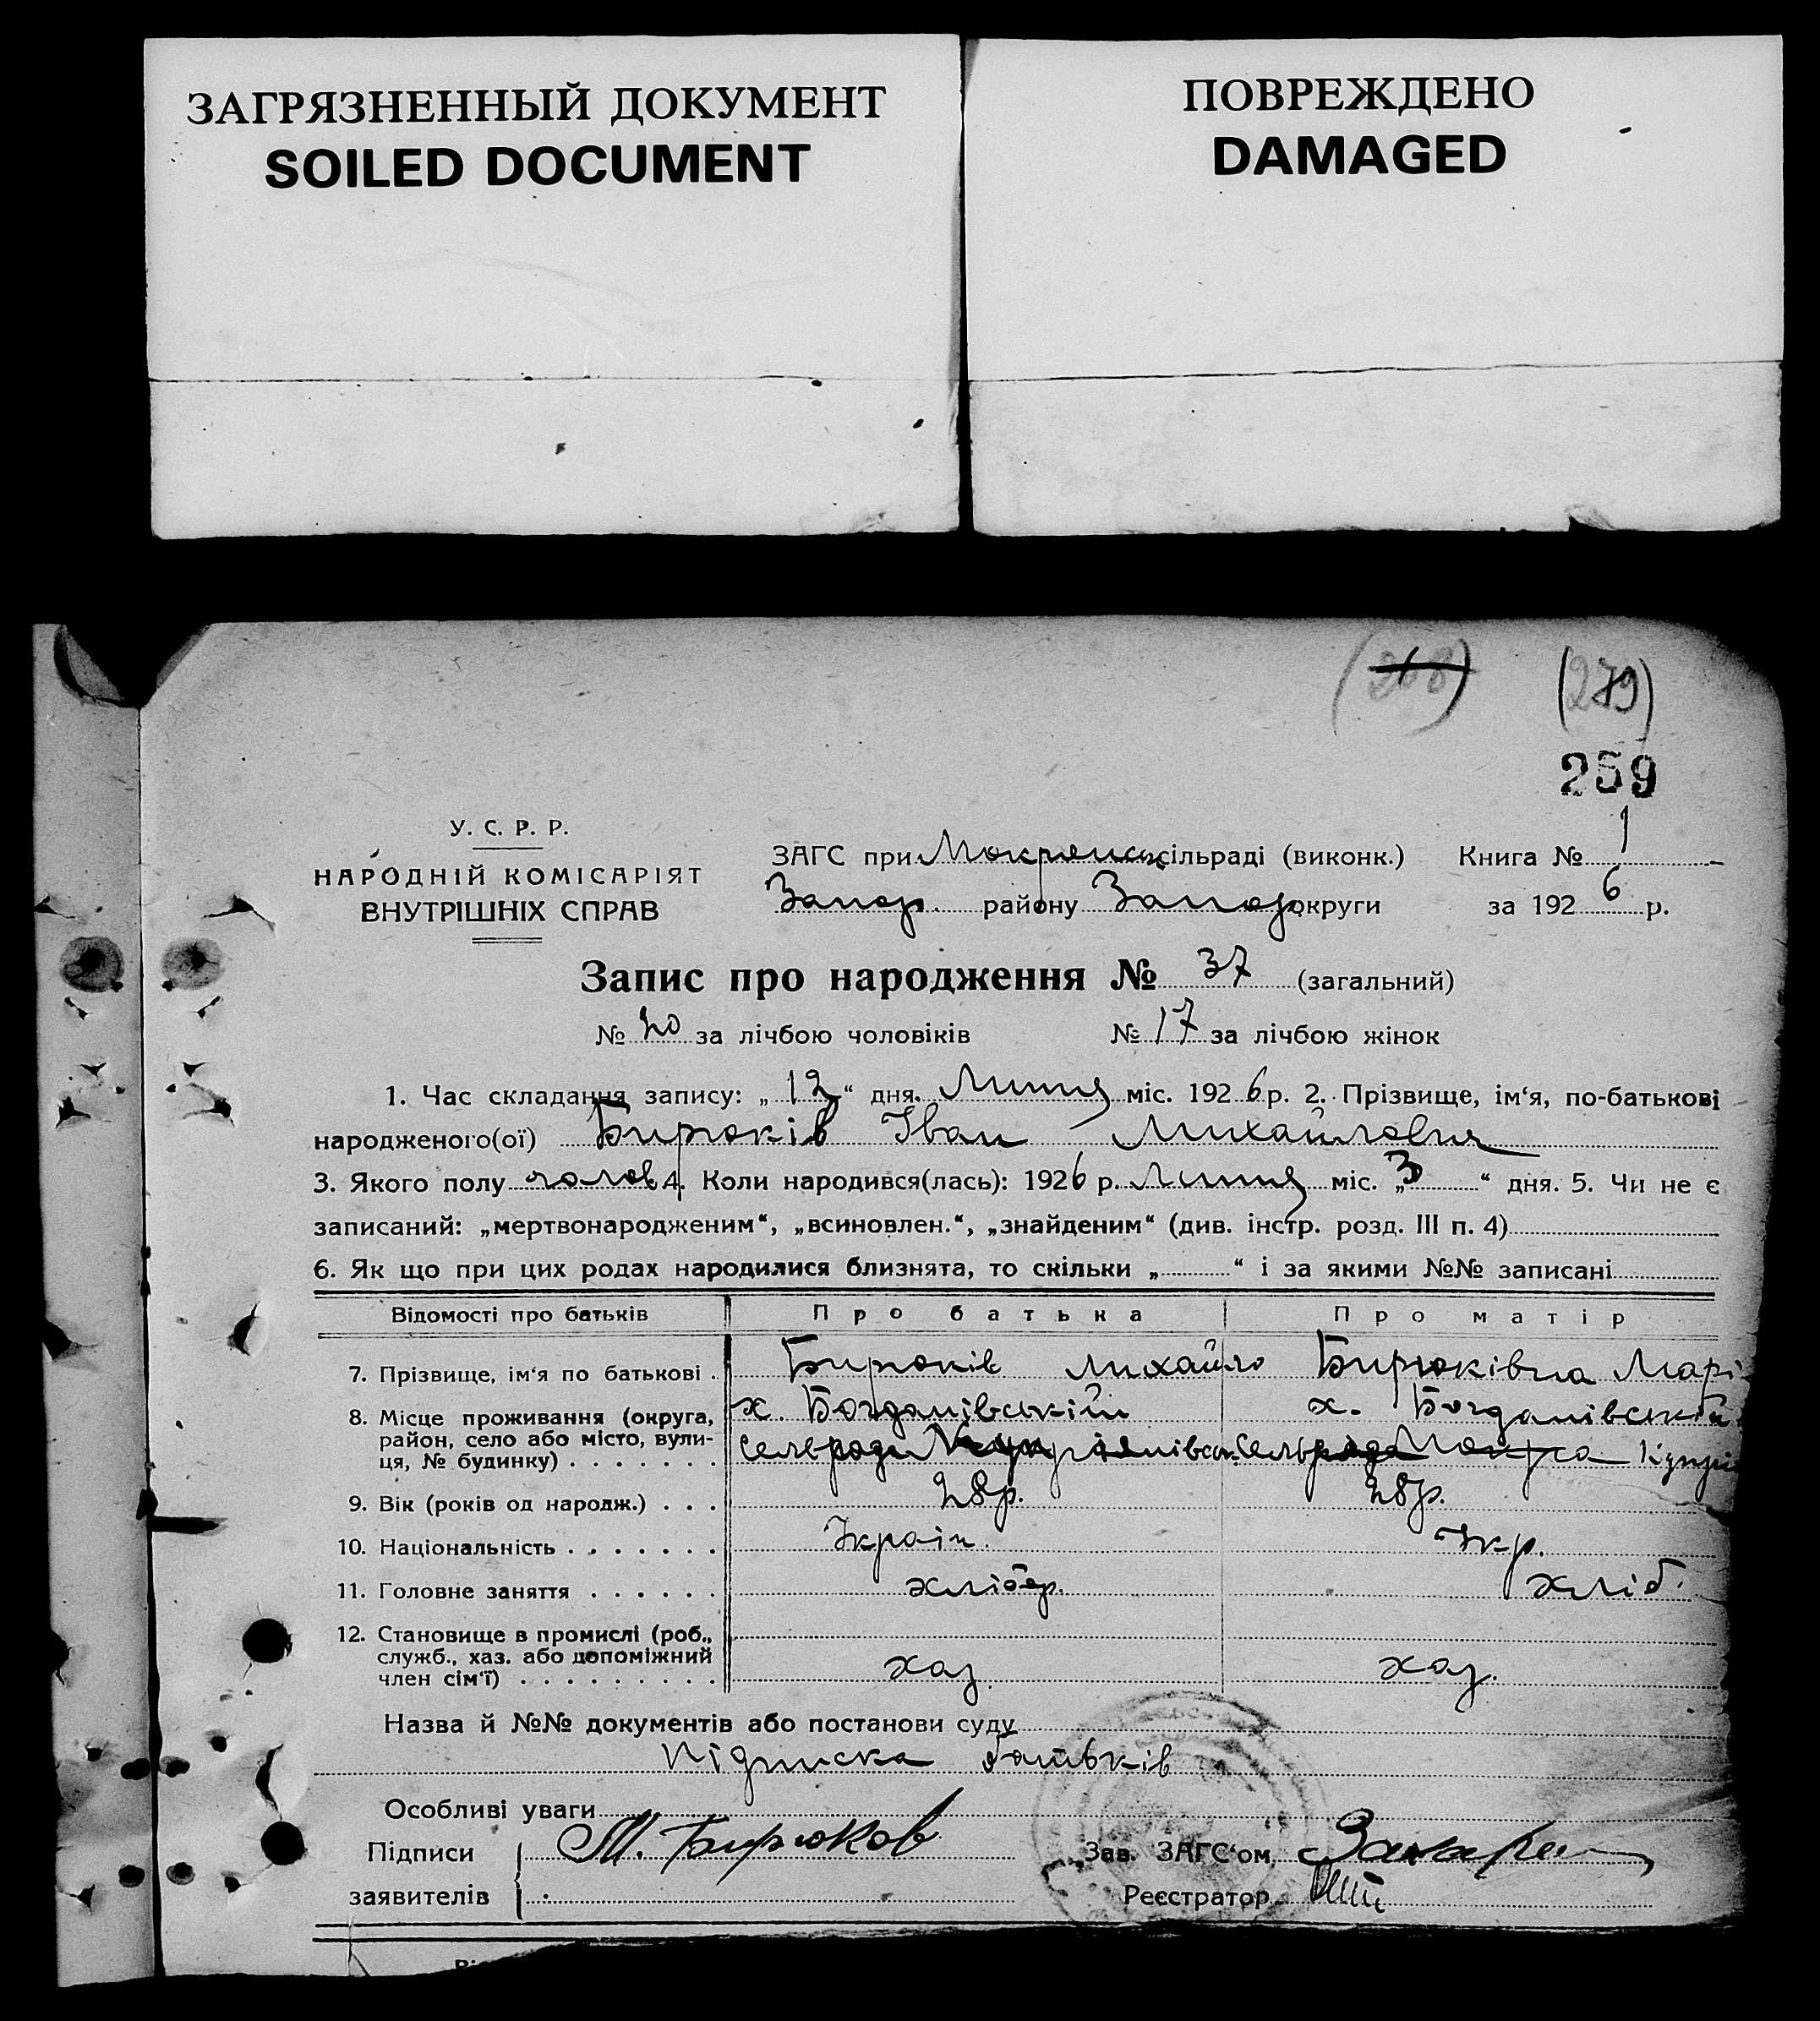 ЗАГРЯЗНЕННЫЙ ДОКУМЕНТ
SOILED DOCUMENT
ПОВРЕЖДЕНО
DAMAGED
(279)
259
У. С. Р. Р.
НАРОДНІЙ КОМІСАРІЯТ
ВНУТРІШНІХ СПРАВ
ЗАГС при Мокрянськ сільраді (виконк.) Книга № 1
Запор. району Запор. округи за 1926 р.
Запис про народження № 37 (загальний)
№ 20 за лічбою чоловіків № 17 за лічбою жінок
1. Час складання запису: „12“ дня Липня міс. 1926 р. 2. Прізвище, ім‘я, по-батькові
народженого(ої) Бирюків Іван Михайлович
3. Якого полу чолов 4. Коли народився(лась): 1926 р. Липня міс. „3“ дня. 5. Чи не є
записаний: „мертвонародженим“, „всиновлен.“, „знайденим“ (див. інстр. розд. III п. 4)
6. Як що при цих родах народилися близнята, то скільки „ “ і за якими №№ записані
Відомості про батьків Про батька Про матір
7. Прізвище, ім‘я по батькові . Бирюків Михайло Бирюківна Марі
8. Місце проживання (округа, х. Богданівський х. Богданівський
район, село або місто, вули-
ця, № будинку) . . . . . . . сельради сельрада
9. Вік (років од народж.) . . . 28р. 28р.
10. Національність . . . . . . . Україн. Укр.
11. Головне заняття . . . . . . хлібор. хліб.
12. Становище в промислі (роб.,
служб., хаз. або допоміжний
член сім‘ї) . . . . . . . . . хаз. хаз.
Назва й №№ документів або постанови суду
Підписка батьків
Особливі уваги
Підписи М. Бирюков Зав. ЗАГС‘ом
заявителів Реєстратор